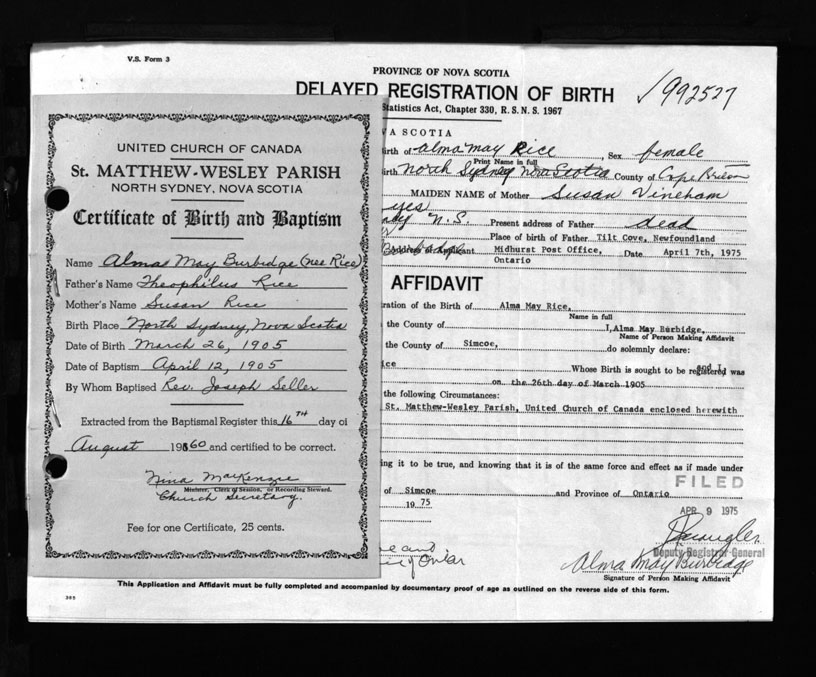 V.S. Form 3
PROVINCE OF NOVA SCOTIA
DELAYED REGISTRATION OF BIRTH
992527
Statistics Act, Chapter 330, R.S.N.S. 1967
UNITED CHURCH OF CANADA
St. MATTHEW-WESLEY PARISH
NORTH SYDNEY, NOVA SCOTIA
Certificate of Birth and Baptism
Name Alma May Burbidge (nee Rice)
Father's Name Theophilus Rice
Mother's Name Susan Rice
Birth Place North Sydney, Nova Scotia
Date of Birth March 26, 1905
Date of Baptism April 12, 1905
By Whom Baptised Rev. Joseph Seller
Extracted from the Baptismal Register this 16TH day of
August 1960 and certified to be correct.
Nina MacKenzie
Minister, Clerk of Session, or Recording Steward.
Church Secretary.
Fee for one Certificate, 25 cents.
VA SCOTIA
irth of Alma May Rice, Sex female
Print Name in full
irth North Sydney Nova Scotia County of Cape Breton
MAIDEN NAME of Mother Susan Vineham
yes
N.S. Present address of Father dead
Place of birth of Father Tilt Cove, Newfoundland
Address of Applicant Midhurst Post Office, Date April 7th, 1975
Ontario
AFFIDAVIT
ration of the Birth of Alma May Rice,
Name in full
the County of I, Alma May Burbidge,
Name of Person Making Affidavit
the County of Simcoe, do solemnly declare:
ice Whose Birth is sought to be registered was
on the 26th day of March 1905
the following Circumstances:
St. Matthew-Wesley Parish, United Church of Canada enclosed herewith
ing it to be true, and knowing that it is of the same force and effect as if made under
FILED
of Simcoe and Province of Ontario
19 75
APR 9 1975
Deputy Registrar General
Alma May Burbidge
Signature of Person Making Affidavit
This Application and Affidavit must be fully completed and accompanied by documentary proof of age as outlined on the reverse side of this form.